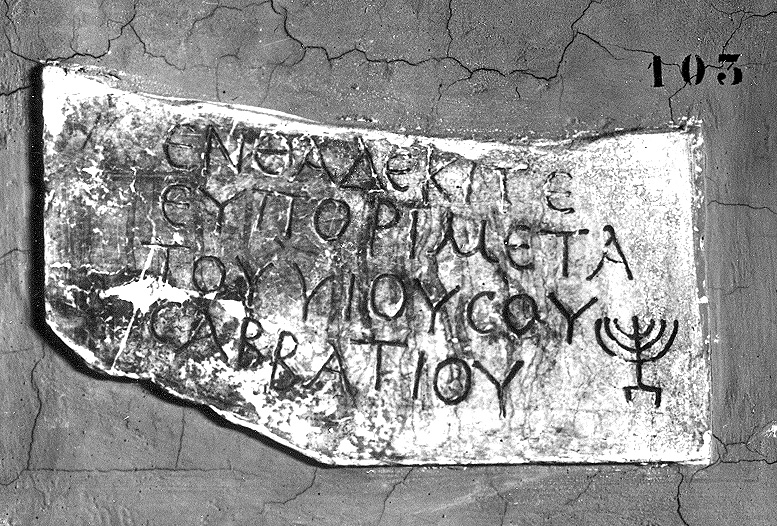 103
ΕΝΘΑΔΕΚΙΤΕ
ΕΥΠΟΡΙΜΕΤΑ
ΤΟΥΥΙΟΥCΟΥ
CΑΒΒΑΤΙΟΥ